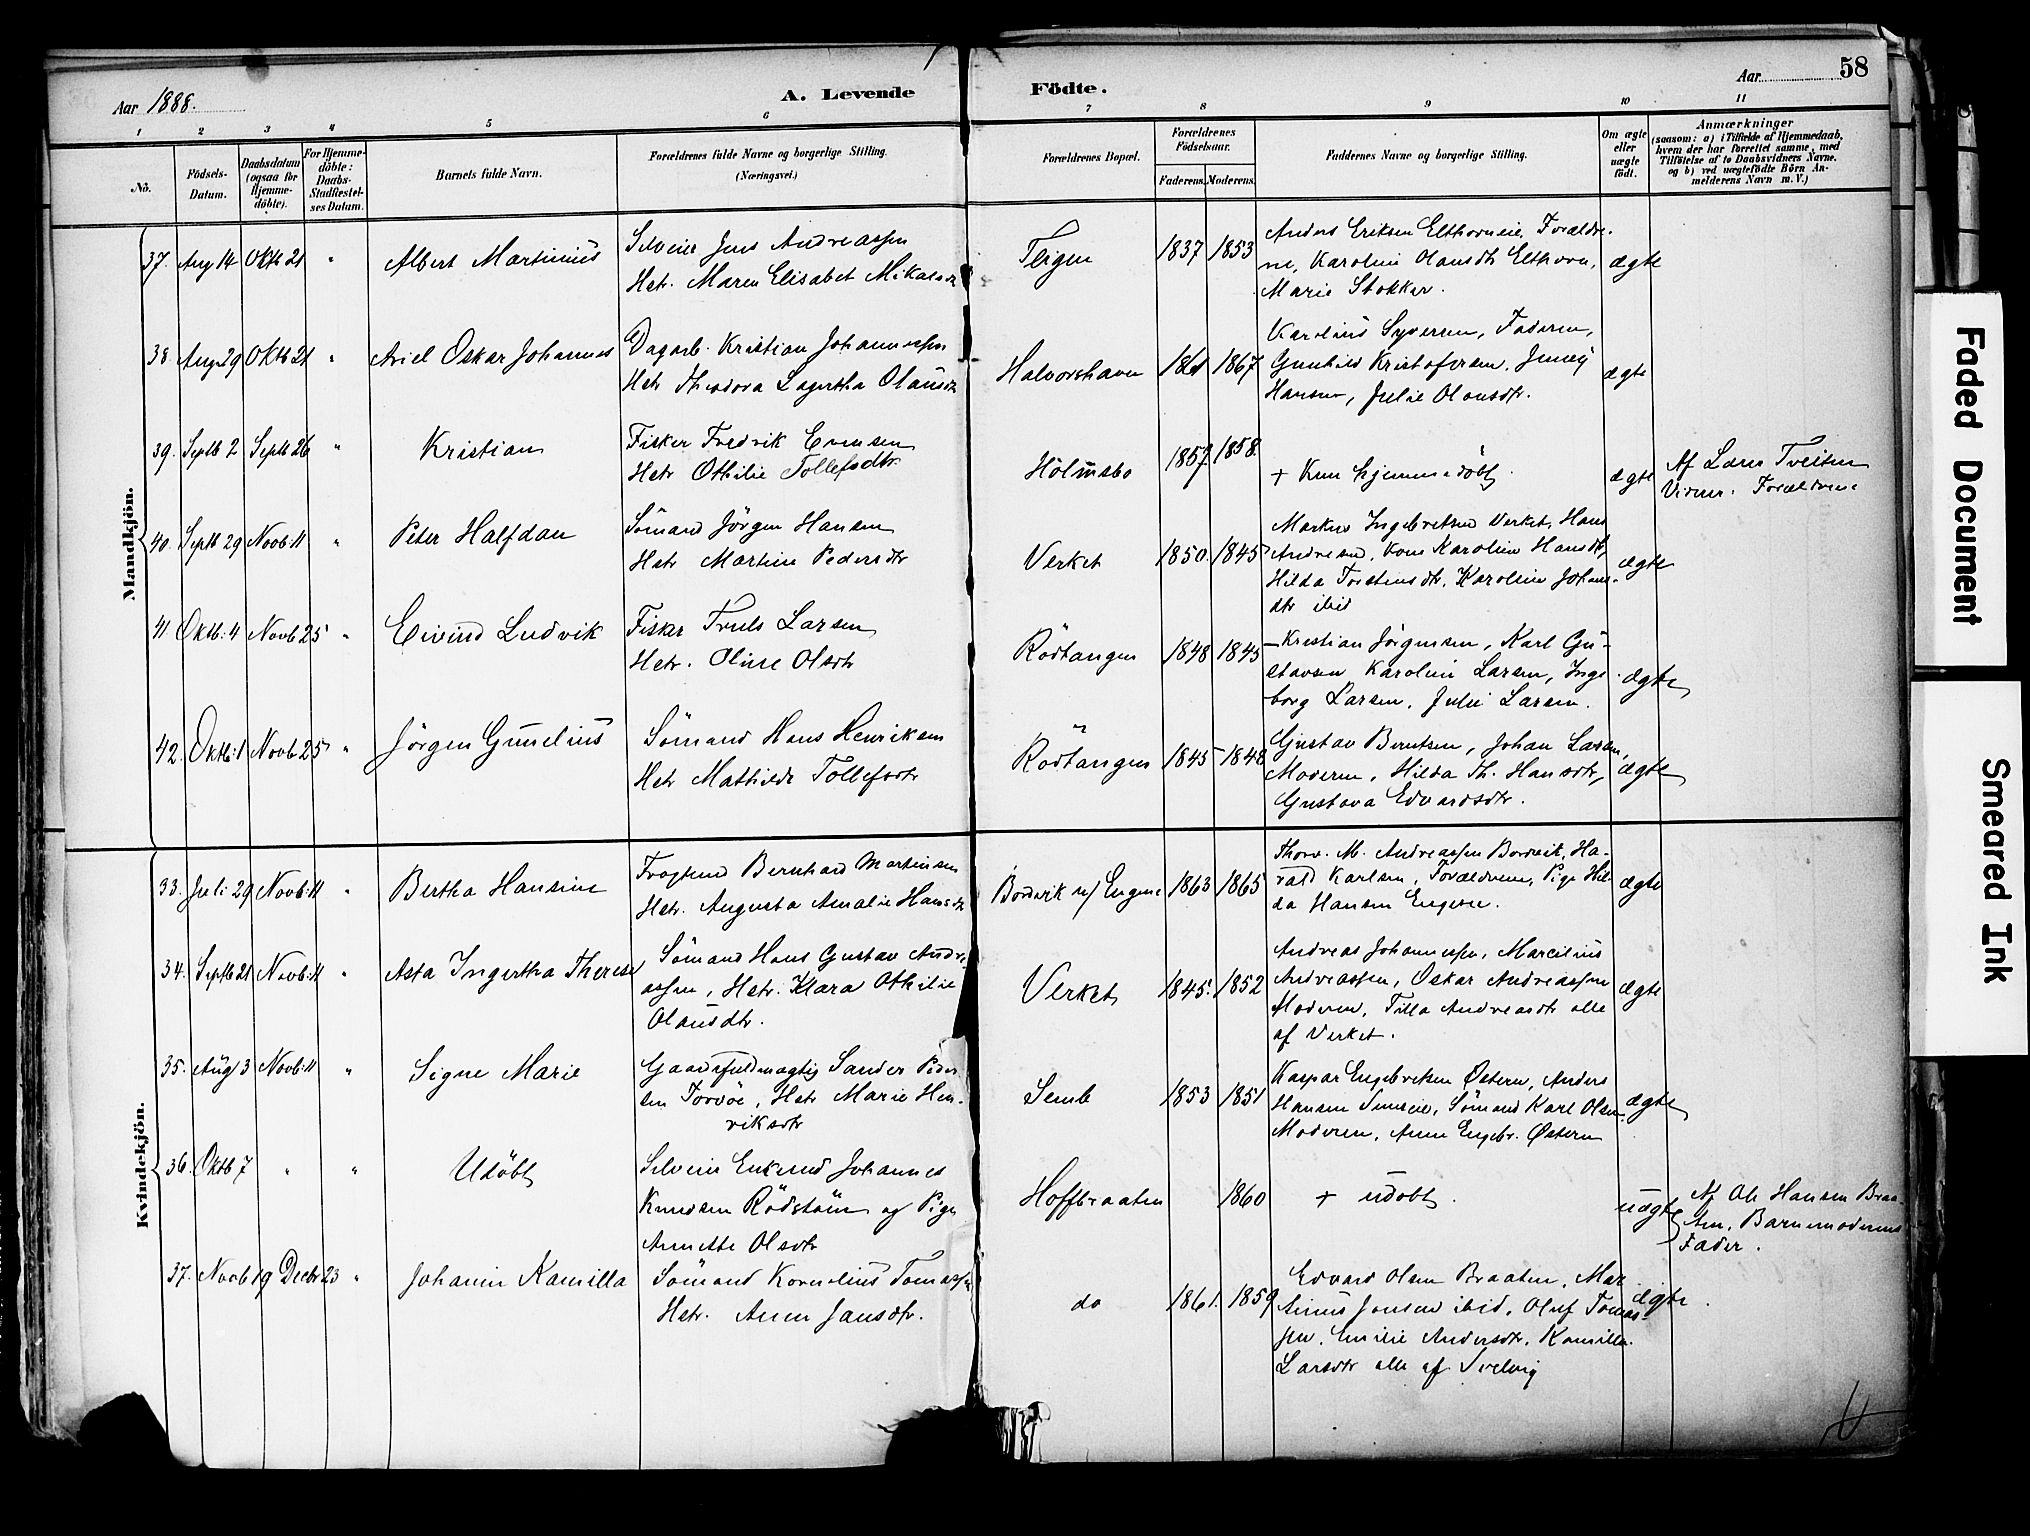 Aar 1888.
A. Levende
Födte.
Aar
58
1 2 3 4 5 6 7 8 9 10 11
No.
Födsels-
Datum.
Daabsdatum
(ogsaa for
Hjemme-
döbte).
For Hjemme-
döbte:
Daabs-
Stadfæstel-
ses Datum.
Barnets fulde Navn.
Forældrenes fulde Navne og borgerlige Stilling.
(Næringsvei.)
Forældrenes Bopæl.
Forældrenes
Födselsaar.
Faderens. Moderens.
Faddernes Navne og borgerlige Stilling.
Om ægte
eller
uægte
födt.
Anmærkninger
(saasom: a) i Tilfælde af Hjemmedaab,
hvem der har forrettet samme, med
Tilföielse af to Daabsvidners Navne.
og b) ved uægtefödte Börn An-
melderens Navn m. V.)
Mandkjön.
37. Aug 14 Oktb 21 " Albert Martinius
Selveier Jens Andreassen
Hstr. Maren Elisabet Mikalsdtr
Teigen 1837 1853
Anders Eriksen Elthorneie, Forældre-
ne, Karoline Olausdtr Elthorn,
Marie Stokker.
ægte
38. Aug 29 Oktb 21 " Oskar Johannes
Dagarb. Kristian Johannessen
Hstr Theodora Lagertha Olausdtr
Halvorshavn 1861 1867
Karolius Syversen, Faderen,
Gunhild Kristofersen, Jenny
Hansen, Julie Olausdtr.
ægte
39. Septb 2 Septb 26 " Kristian
Fisker Fredrik Evensen
Hstr Othilie Tollefsdtr.
Holmsbo 1857 1858
+ Kun hjemmedöbt.
ægte
Af Lars Tveiten
Vidner: Forældrene
40. Septb 29 Novb: 11 " Peter Halfdan
Sömand Jörgen Hansen
Hstr Martine Pedersdtr
Verket 1850. 1845
Markus Ingebretsen Verket, Hans
Andresen, Kone Karoline Hansdtr,
Hilda Torstensdtr, Karoline Johans-
dtr ibid
ægte
41 Oktb: 4 Novb 25 " Eivind Ludvik
Fisker Truls Larsen
Hstr. Oline Olsdtr
Rödtangen 1848 1845
Kristian Jörgensen, Karl Gu-
stavsen Karoline Larsen, Inge-
borg Larsen, Julie Larsen.
ægte
42. Oktb: 1 Novb 25 " Jörgen Gunelius
Sömand Hans Henriksen
Hstr Mathilde Tollefsdtr
Rödtangen 1845 1848
Gustav Berntsen, Johan Larsen,
Moderen, Hilda Th. Hansdtr,
Gustava Edvardsdtr.
ægte
Kvindekjön.
33. Juli 29 Novb: 11 " Bertha Hansine
Bernhard Martinsen
Hstr. Augusta Amalie Hansdtr
Bordvik u/ Engene 1863 1865
Thorv. M. Andreassen Bordvik, Ha-
rald Karlsen, Forældrene, Pige Hil-
da Hansen Engene.
ægte
34. Septb 21 Novb: 11 " Asta Ingertha Therese
Sömand Hans Gustav Andre-
assen, Hstr. Klara Othilie
Olausdtr.
Verket 1845. 1852
Andreas Johannessen, Marcilius
Andreassen, Oskar Andreassen
Moderen, Tilla Andreasdtr alle
af Verket.
ægte
35. Aug 3 Novb: 11 " Signe Marie
Gaardsfuldmægtig Sander Peder-
sen Torvöe, Hstr Marie Hen-
riksdtr
Semb 1853 1851
Kaspar Engebretsen Östern, Anders
Hansen, Sömand Karl Olsen
Moderen, Anne Engebr. Östern
ægte
36. Oktb 7 " " Udöbt
Selveier Enkemd Johannes
Knudsen Rödstöen og Pige
Annette Olsdtr
Hoffbraaten 1860
+ udobt
uægte
Af Ole Hansen Braa-
ten, Barnemoderens
Fader.
37. Novb 19 Decbr 23 " Johanne Kamilla
Sömand Kornelius Tomassen
Hstr. Anne Jansdtr.
do 1861. 1859
Edvard Olsen Braaten, Mar-
tinus Jensen ibid, Oluf Tomas-
sen, Emilie Andersdtr, Kamilla
Larsdtr alle af Svelvig
ægte
Faded Document
Smeared Ink